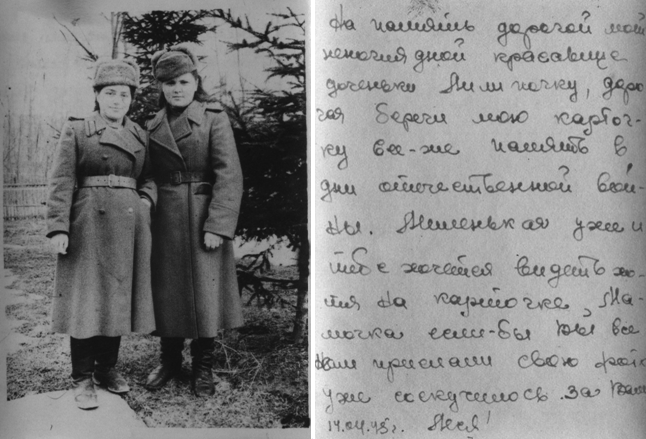 На память дорогой мой
ненаглядной красавице
доченьке Лилипочку, доро
гая береги мою карточ-
ку все-же память в
дни отечественной вой-
ны. Лиленькая уже и
тебе хочется видеть хо-
тя на карточке, Ма-
мочка если-бы Вы все
нам прислали свою фото
уже соскучилось за Вами
14.04.45г.